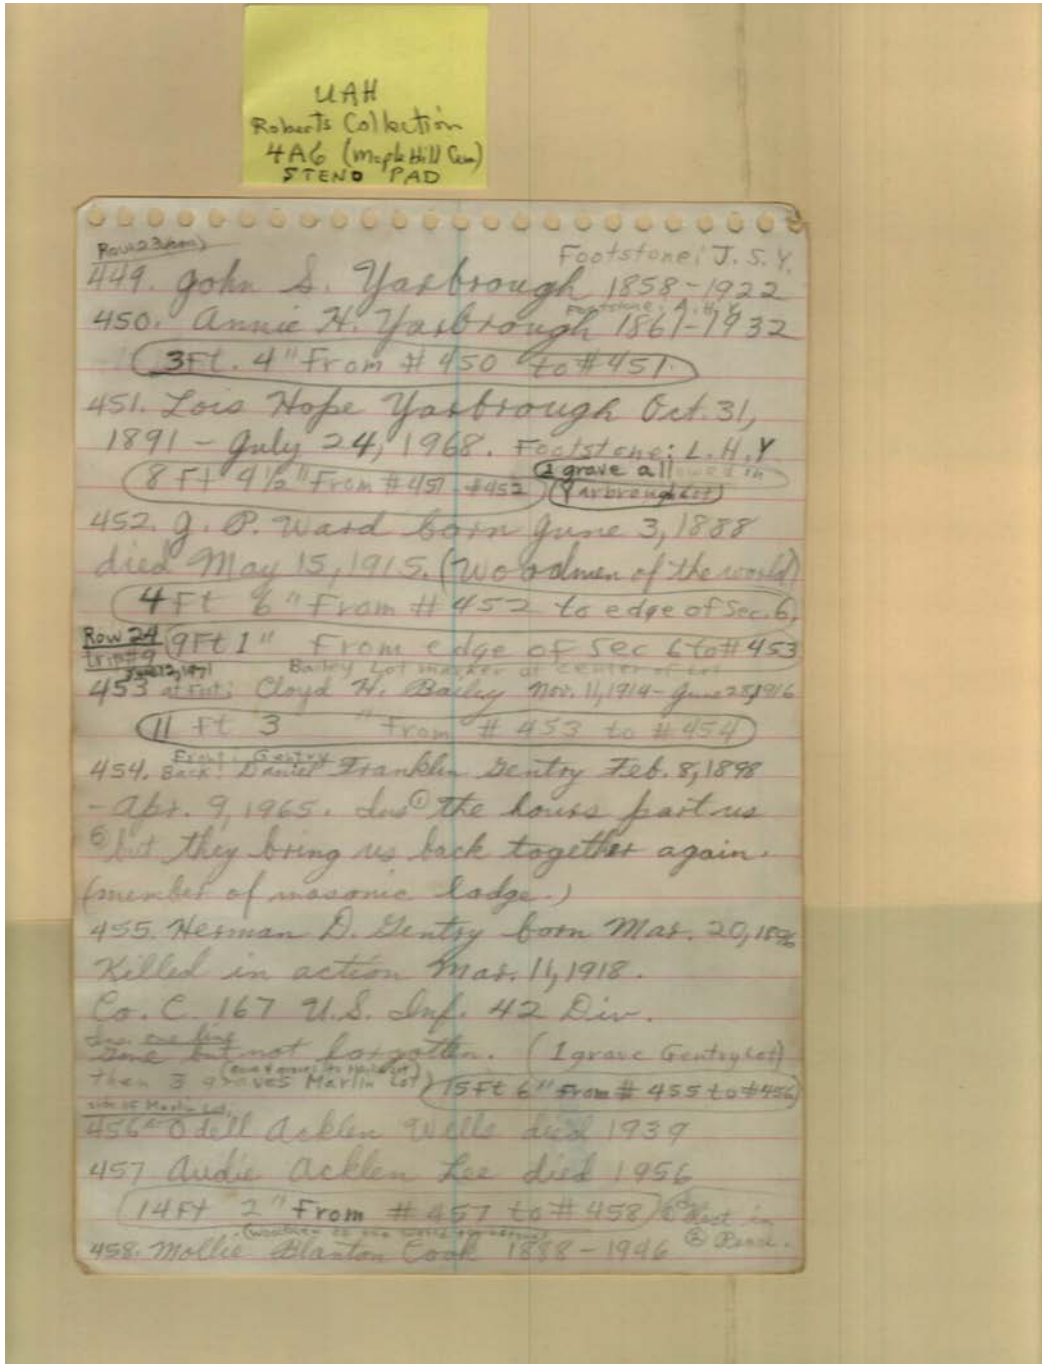 UAH
Roberts Collection
4A6 (Maple Hill Cem)
STENO PAD
Row 23 (con)
Footstone: J. S. Y.
449. John S. Yarbrough 1858-1922
Footstone: A. H. Y.
450. Annie H. Yarbrough 1861-1932
3Ft. 4" From # 450 to #451.
451. Lois Hope Yarbrough Oct. 31,
1891 - July 24, 1968. Footstone: L. H. Y
8 Ft 9½" From #451 - #452
(1 grave allowed in
Yarbrough Lot)
452. J. P. Ward born June 3, 1888
died May 15, 1915. (Woodmen of the world)
4Ft 6" From # 452 to edge of Sec. 6,
Row 24
trip #9
9Ft 1" From edge of Sec 6 to # 453
Bailey Lot marker at center of Lot
453 Cloyd H. Bailey Nov. 11, 1914 - June 28, 1916
11 Ft 3 " From # 453 to # 454
Front: Gentry
454. Back: Daniel Franklin Gentry Feb. 8, 1898
- Apr. 9, 1965. Ins ① the hours part us
② but they bring us back together again.
(member of masonic lodge.)
455. Herman D. Gentry born Mar. 20, 1896
Killed in action Mar. 11, 1918.
Co. C. 167 U.S. Inf. 42 Div.
Ins. one line
Gone but not forgotten. (1 grave Gentry Lot)
then 3 graves Marlin Lot)
15Ft 6" From # 455 to #456
side of Marlin Lot.
456 Odell Acklen Wells died 1939
457 Audie Acklen Lee died 1956
14Ft 2" From # 457 to # 458
① Rest in
② Peace.
458. Mollie Blanton Cook 1888-1946